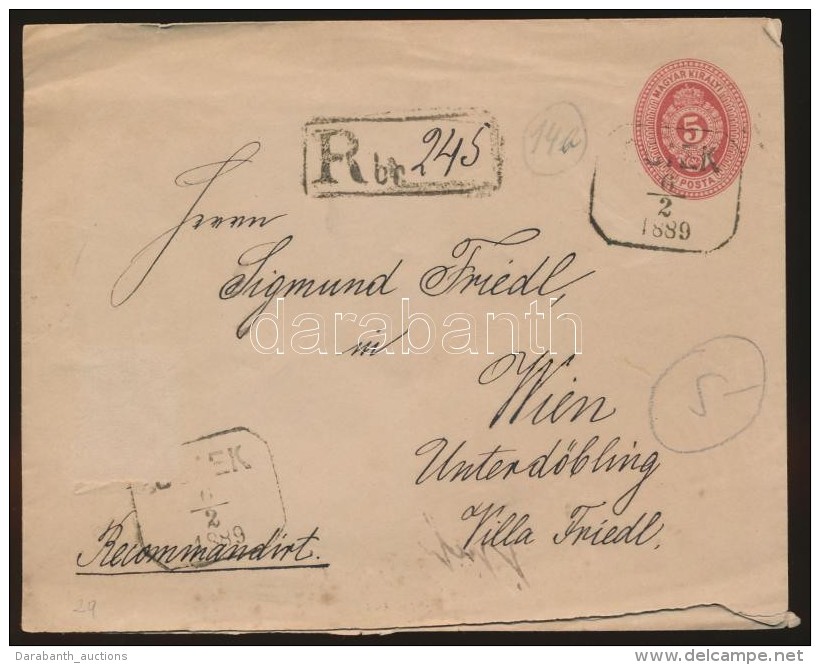 MAGYAR KIRÁLYI
5
POSTA
R br 245
14a
6
2
1889
Herrn
Sigmund Friedl,
darabanth
in
Wien
5-
Unterdöbling
Villa Friedl,
EK
2
1889
Recommandirt.
29
Darabanth_auctions
www.delcampe.net